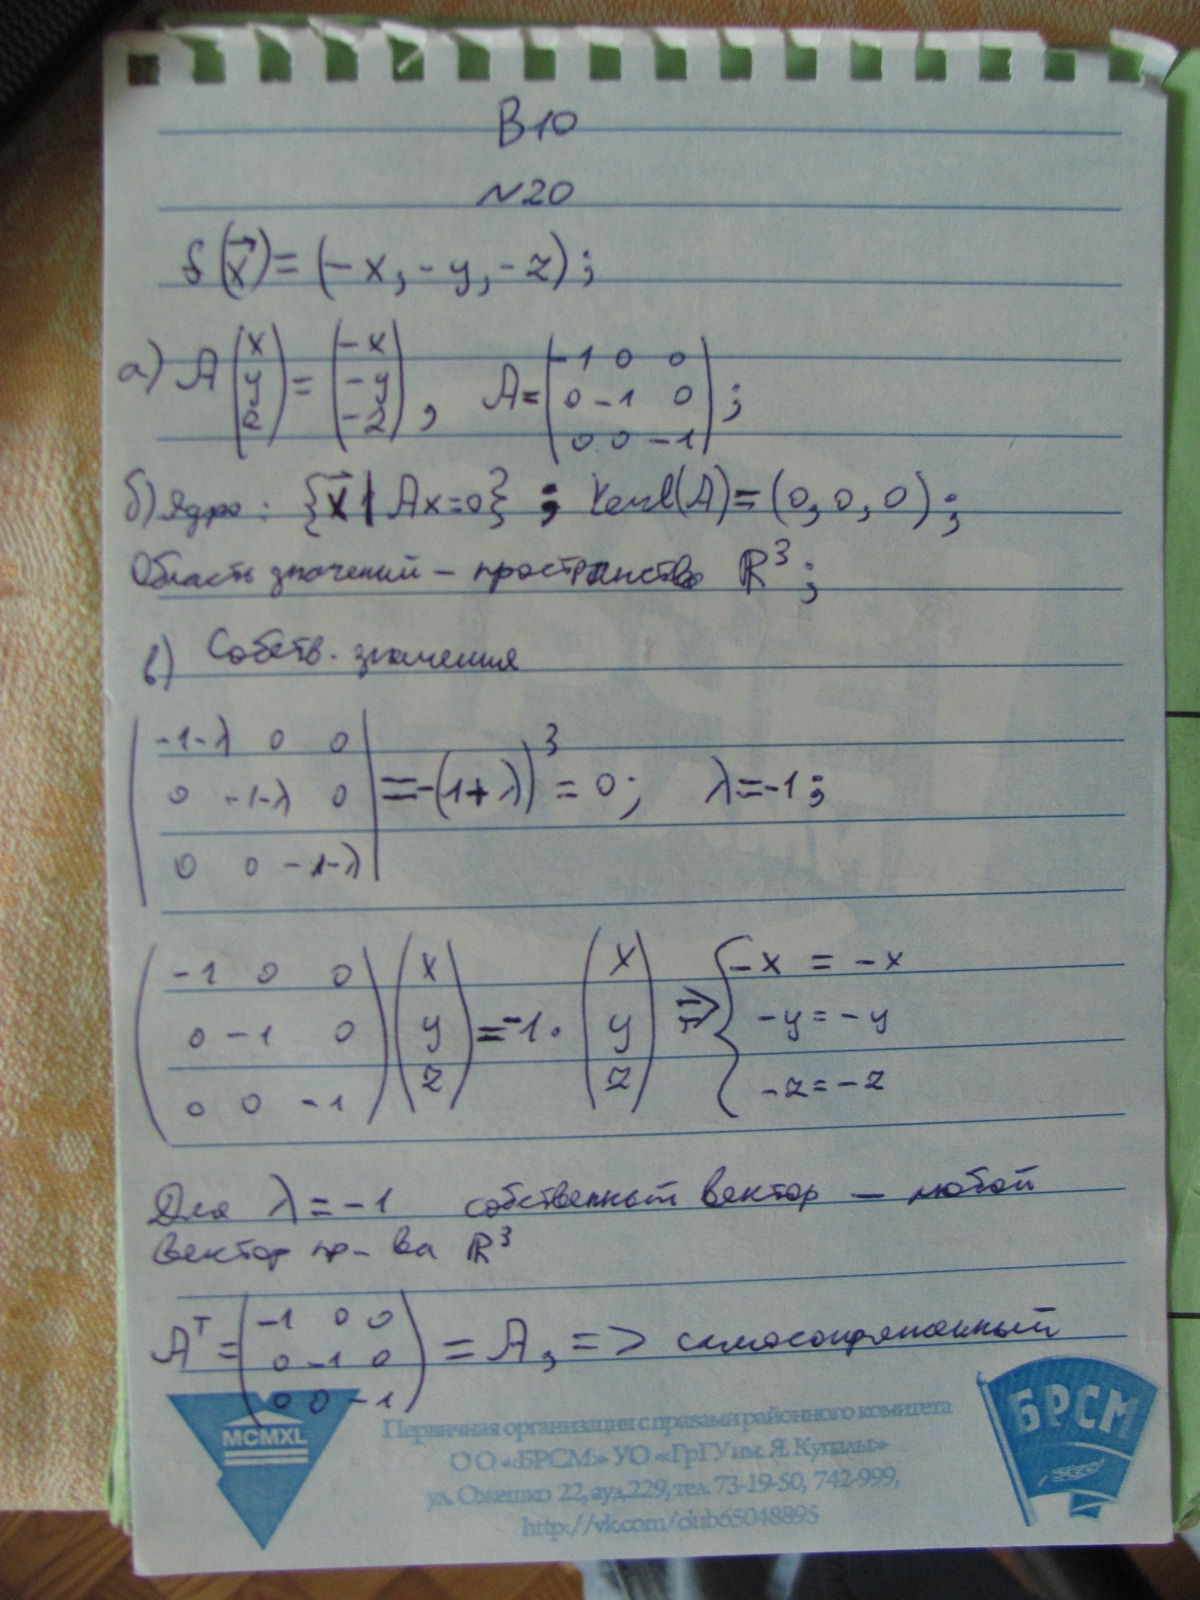 В10
№20
f(x⃗) = (-x, -y, -z);
а) A (x y z) = (-x -y -z), A = (-1 0 0
0 -1 0
0 0 -1);
б) Ядро: {x⃗ | Ax=0}; Kernel(A) = (0, 0, 0);
Область значений – пространство ℝ³;
в) Собств. значения
|-1-λ 0 0
0 -1-λ 0
0 0 -1-λ| = -(1+λ)³ = 0; λ=-1;
(-1 0 0
0 -1 0
0 0 -1) (x y z) = -1· (x y z) ⇒ { -x = -x
-y = -y
-z = -z
Для λ = -1 собственный вектор – любой
вектор пр-ва ℝ³
Aᵀ = (-1 0 0
0 -1 0
0 0 -1) = A, => самосопряженный
MCMXL
Первичная организация с правами районного комитета
О О «БРСМ» УО «ГрГУ им. Я. Купалы»
ул. Ожешко 22, ауд.229, тел. 73-19-50, 742-999,
http://vk.com/club65048895
БРСМ